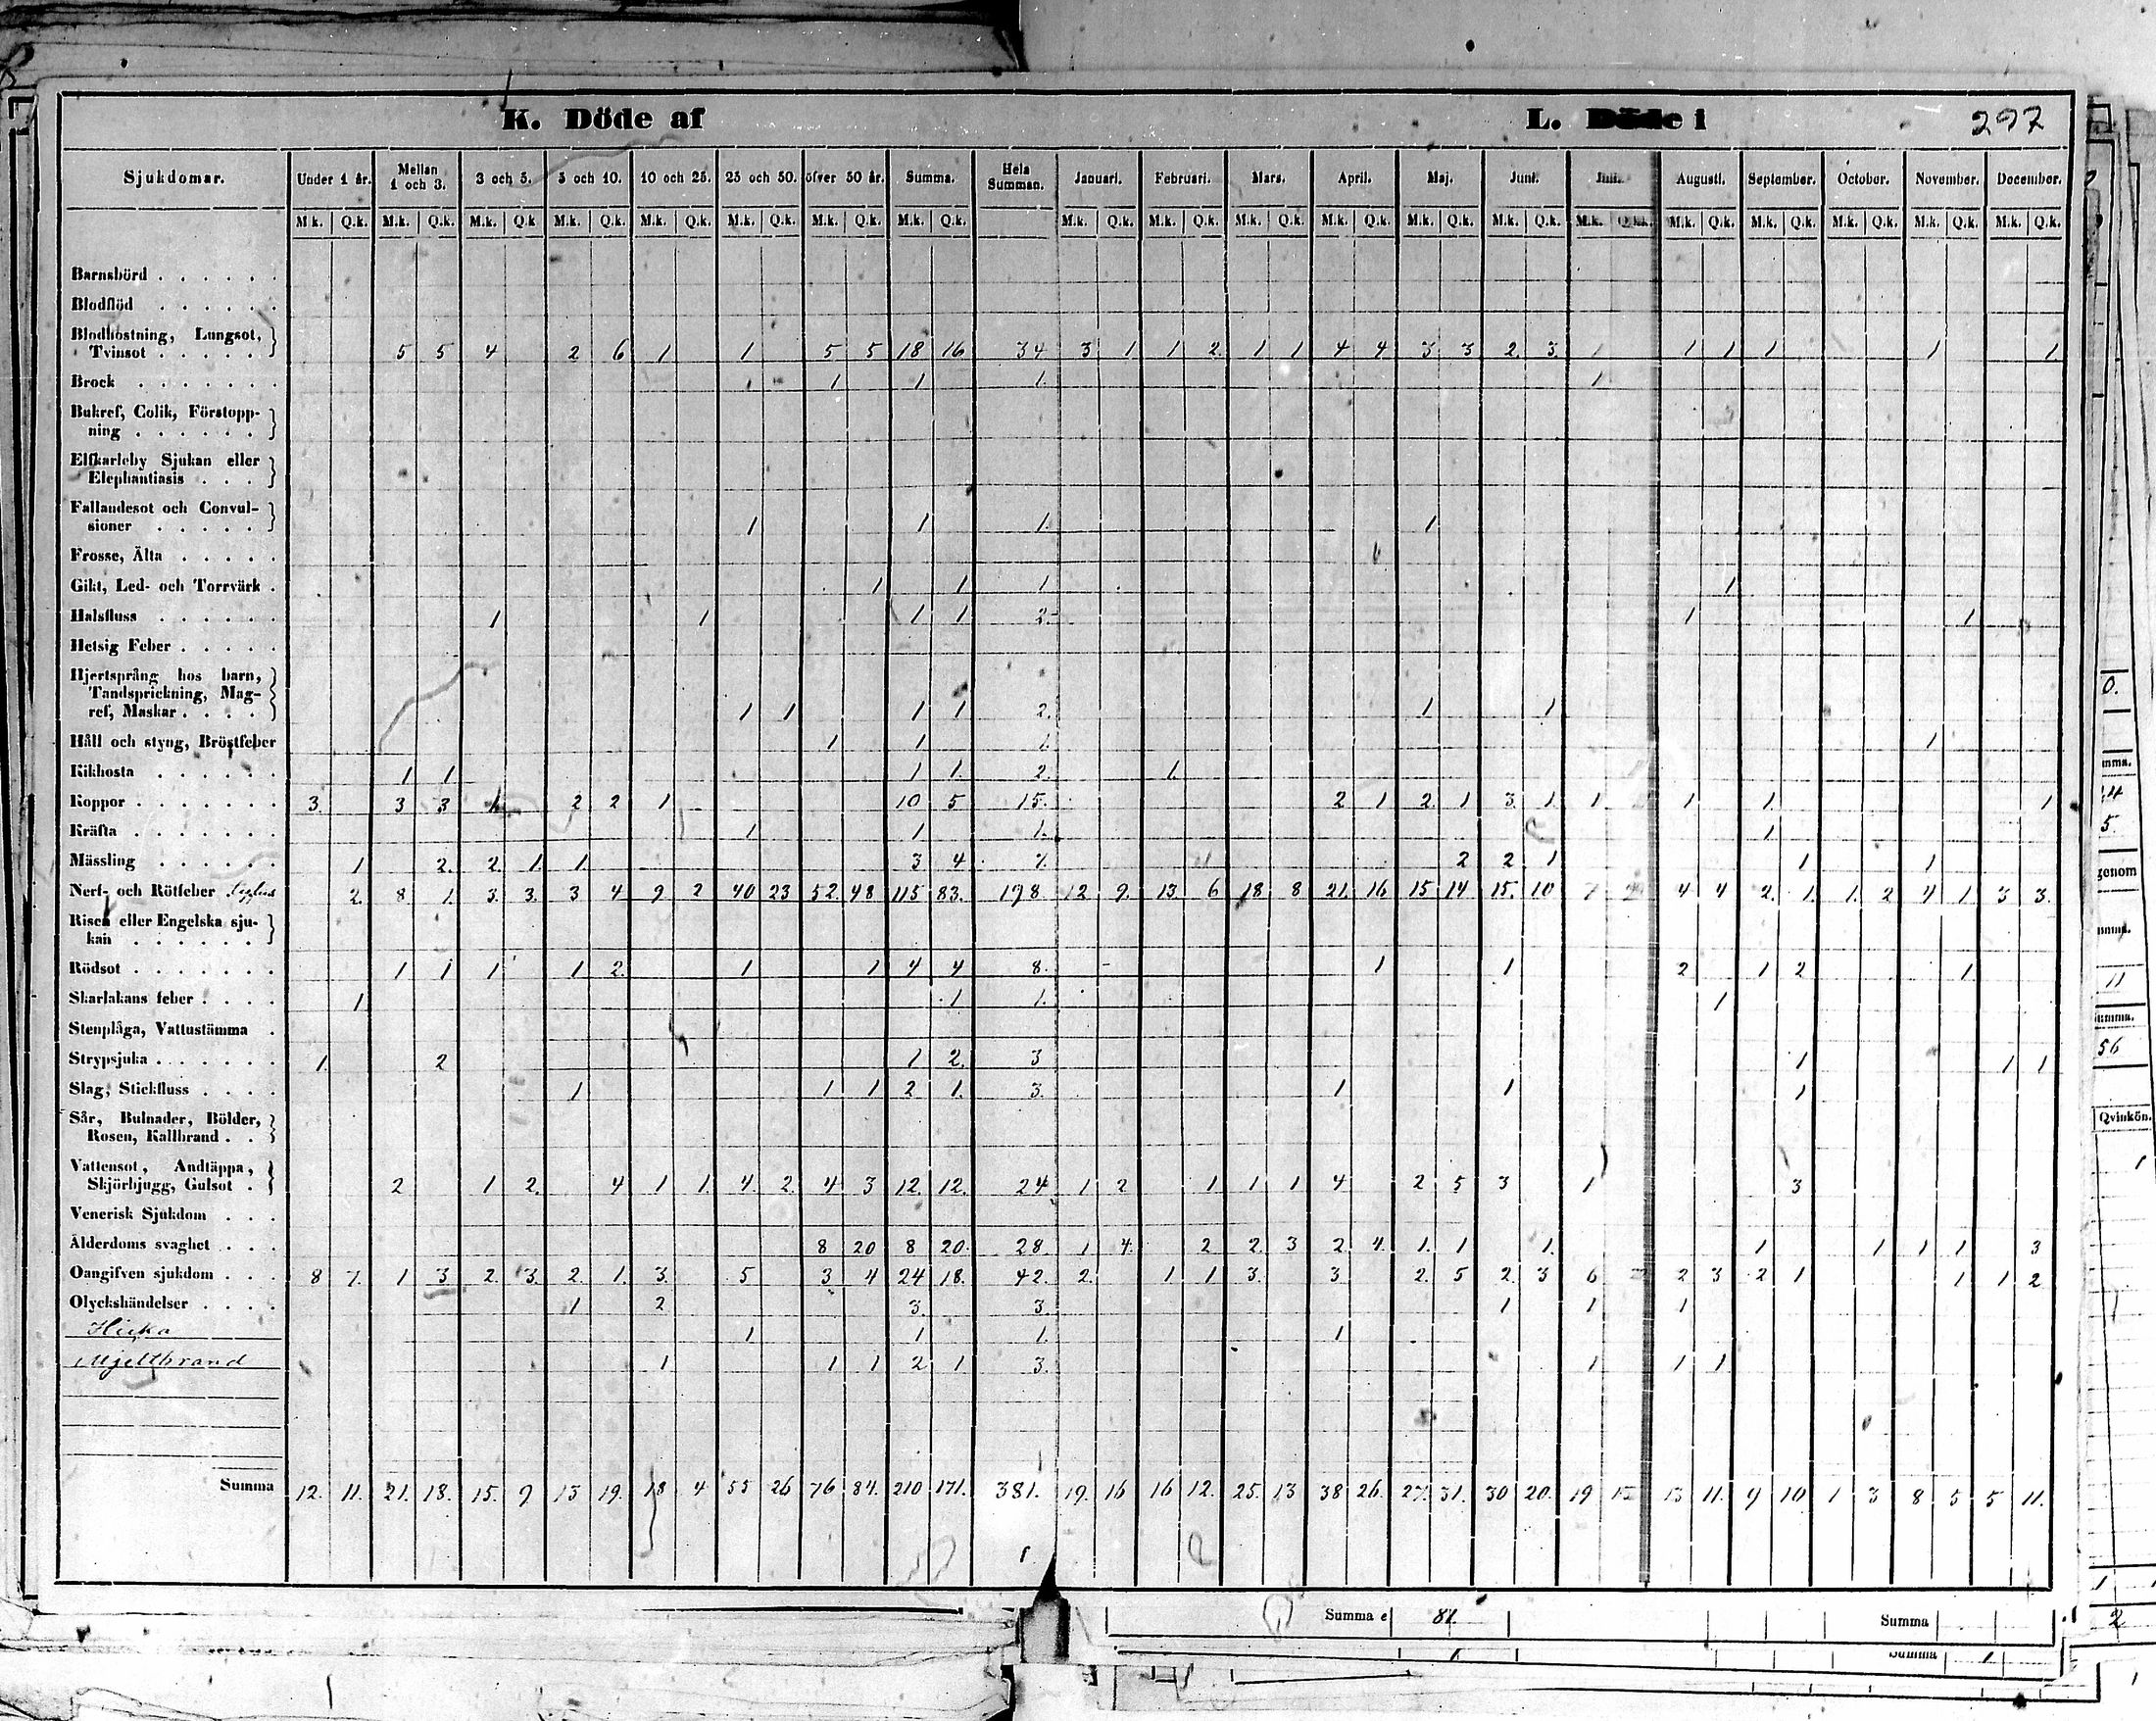 K. Döde af L. Döde i 297
Sjukdomar. Under 1 år. Mellan 1 och 3. 3 och 5. 5 och 10. 10 och 25. 25 och 50. öfver 50 år. Summa. Hela Summan. Januari. Februari. Mars. April. Maj. Juni. Juli. Augusti. September. October. November. December.
M.k. Q.k. M.k. Q.k. M.k. Q.k M.k. Q.k. M.k. Q.k. M.k. Q.k. M.k. Q.k. M.k. Q.k. M.k. Q.k. M.k. Q.k. M.k. Q.k. M.k. Q.k. M.k. Q.k. M.k. Q.k. M.k. Q.k. M.k. Q.k. M.k. Q.k. M.k. Q.k. M.k. Q.k. M.k. Q.k.
Barnsbörd . . . . . .
Blodflöd . . . . . .
Blodhostning, Lungsot,
Tvinsot . . . . . 5 5 4 2 6 1 1 5 5 18 16 34 3 1 1 2 1 1 4 4 3 3 2 3 1 1 1 1 1 1
Brock . . . . . . . 1 1 1. 1
Bukref, Colik, Förstopp-
ning . . . . . .
Elfkarleby Sjukan eller
Elephantiasis . . .
Fallandesot och Convul-
sioner . . . . . 1 1 1. 1
Frosse, Älta . . . . .
Gikt, Led- och Torrvärk . 1 1 1 1
Halsfluss . . . . . . 1 1 1 1 2. 1 1
Hetsig Feber . . . . .
Hjertsprång hos barn,
Tandsprickning, Mag-
ref, Maskar . . . . 1 1 1 1 2. 1 1
Håll och styng, Bröstfeber 1 1 1. 1
Kikhosta . . . . . . 1 1 1 1. 2. 1.
Koppor . . . . . . . 3. 3 3 1. 2 2 1 10 5 15. 2 1 2 1 3 1 1 1 1 1
Kräfta . . . . . . . 1 1 1. 1
Mässling . . . . . . 1 2. 2. 1. 1 3 4 7. 2 2 1 1 1
Nerf- och Rötfeber 2. 8 1. 3. 3. 3 4 9 2 40 23 52. 48 115 83. 198 12 9. 13 6 18 8 21. 16 15 14 15. 10 7 4 4 2. 1. 1. 2 4 1 3 3.
Risen eller Engelska sju-
kan . . . . . .
Rödsot . . . . . . . 1 1 1 1 2. 1 1 4 4 8. 1 1 2 1 2 1
Skarlakans feber . . . . 1 1 1. 1
Stenplåga, Vattustämma .
Strypsjuka . . . . . . 1. 2 1 2. 3 1 1 1
Slag, Stickfluss . . . . 1 1 1 2 1. 3. 1 1 1
Sår, Bulnader, Bölder,
Rosen, Kallbrand . .
Vattensot, Andtäppa,
Skjörbjugg, Gulsot . 2 1 2. 4 1 1. 4. 2. 4 3 12. 12. 24 1 2 1 1 1 4 2 5 3 1 3
Venerisk Sjukdom . . .
Ålderdoms svaghet . . . 8 20 8 20. 28. 1 4. 2 2. 3 2. 4. 1. 1 1. 1 1 1 1 3
Oangifven sjukdom . . . 8 7. 1 3 2. 3. 2. 1. 3. 5 3 4 24 18. 42. 2. 1 1 3. 3 2. 5 2. 3 6 2 3 2 1 1 1 2
Olyckshändelser . . . . 1 2 3. 3. 1 1 1
Hicka 1 1 1. 1
Mjeltbrand 1 1 1 2 1 3. 1 1 1
Summa 12. 11. 21. 18. 15. 9 13 19. 18 4 55 26 76 84. 210 171. 381. 19. 16 16 12. 25. 13 38 26. 27. 31. 30 20. 19 13 11. 9 10 1 3 8 5 5 11.
Summa 81. Summa 2
Summa
Qvinkön.